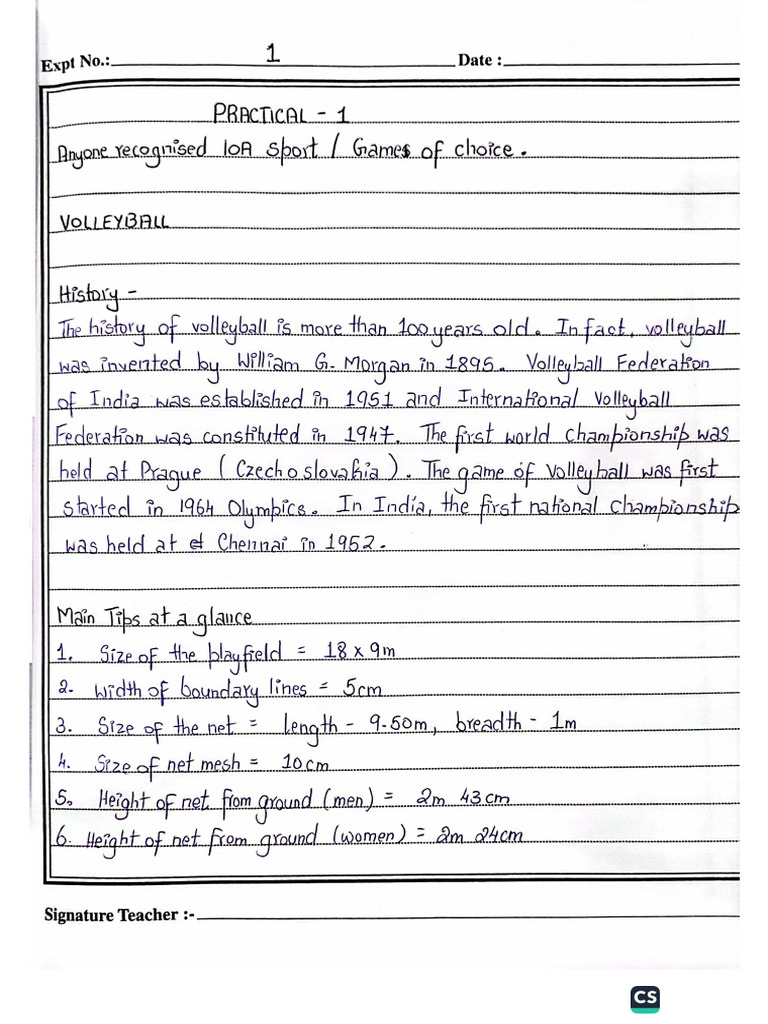 Expt No.: 1 Date :
PRACTICAL - 1
Anyone recognised IOA sport / Games of choice.
VOLLEYBALL
History -
The history of volleyball is more than 100 years old. In fact, volleyball
was invented by William G. Morgan in 1895. Volleyball Federation
of India was established in 1951 and International Volleyball
Federation was constituted in 1947. The first world championship was
held at Prague ( Czechoslovakia ). The game of volleyball was first
started in 1964 Olympics. In India, the first national championship
was held at Chennai in 1952.
Main Tips at a glance
1. Size of the playfield = 18 x 9m
2. Width of boundary lines = 5cm
3. Size of the net = length - 9.50m, breadth - 1m
4. Size of net mesh = 10cm
5. Height of net from ground (men) = 2m 43cm
6. Height of net from ground (women) = 2m 24cm
Signature Teacher :-
CS